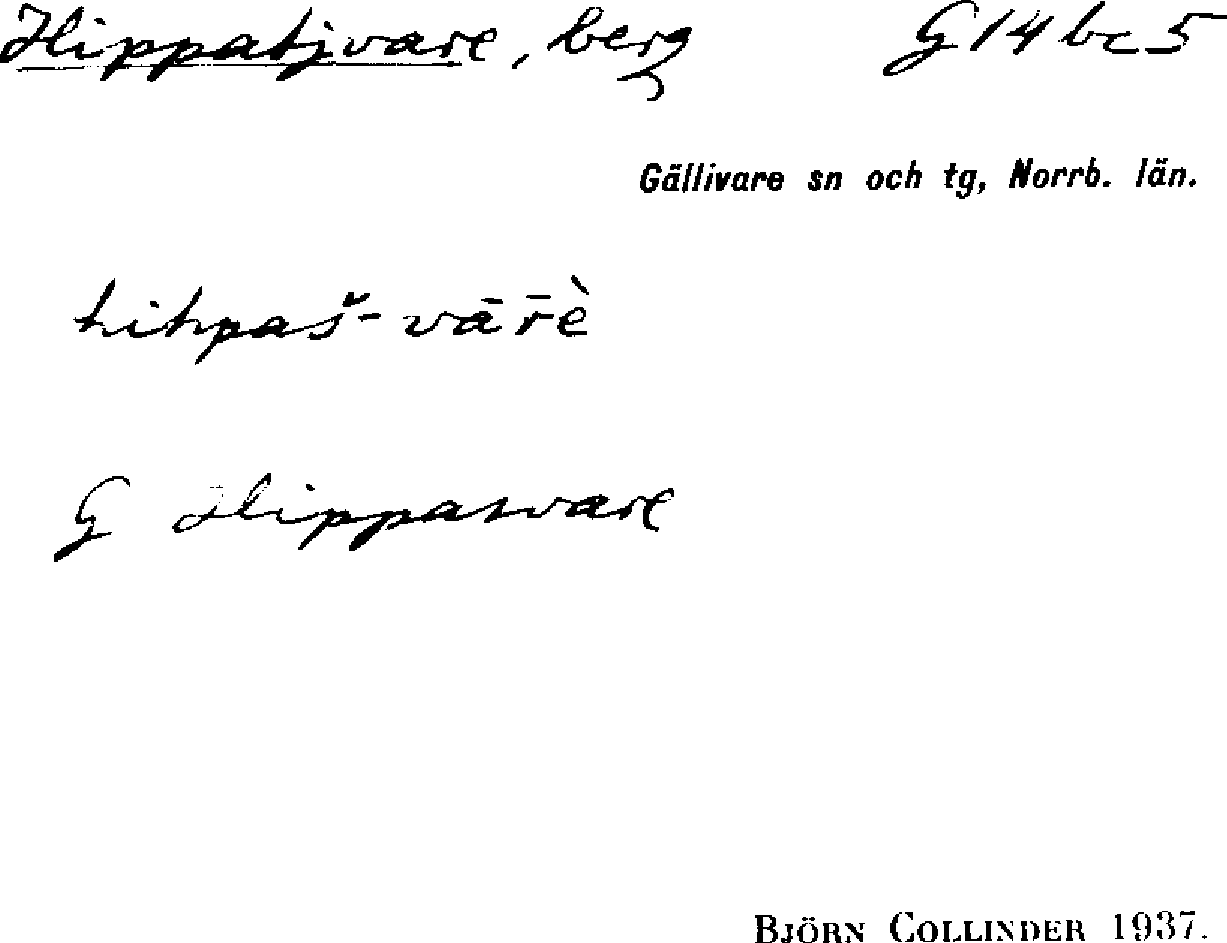 Hippatjvare, berg G14bc5
Gällivare sn och tg, Norrb. län.
hihpaš-vār̄è
G Hippasvare
BJÖRN COLLINDER 1937.